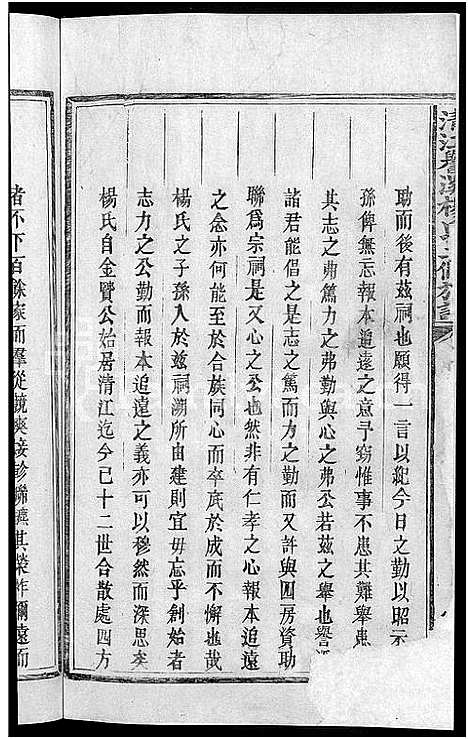 清江 溪楊氏 修族譜
助而後有茲祠也願得一言以紀今日之勤以昭示
孫俾無忘報本追遠之意予竊惟事不患其難舉患
其志之弗篤力之弗勤與心之弗公若茲之舉也譽
諸君能倡之是志之篤而力之勤又許與四房資助
聯為宗祠是又心之公也然非有仁孝之心報本追遠
之念亦何能至於合族同心而卒底於成而不懈也哉
楊氏之子孫入於茲祠溯所由建則宜毋忘乎創始者
志力之公勤而報本追遠之義亦可以穆然而深思矣
楊氏自金賢公始居清江迄今已十二世合散處四方
者不下百餘家而羣從競爽接診聯 其榮祚彌遠而